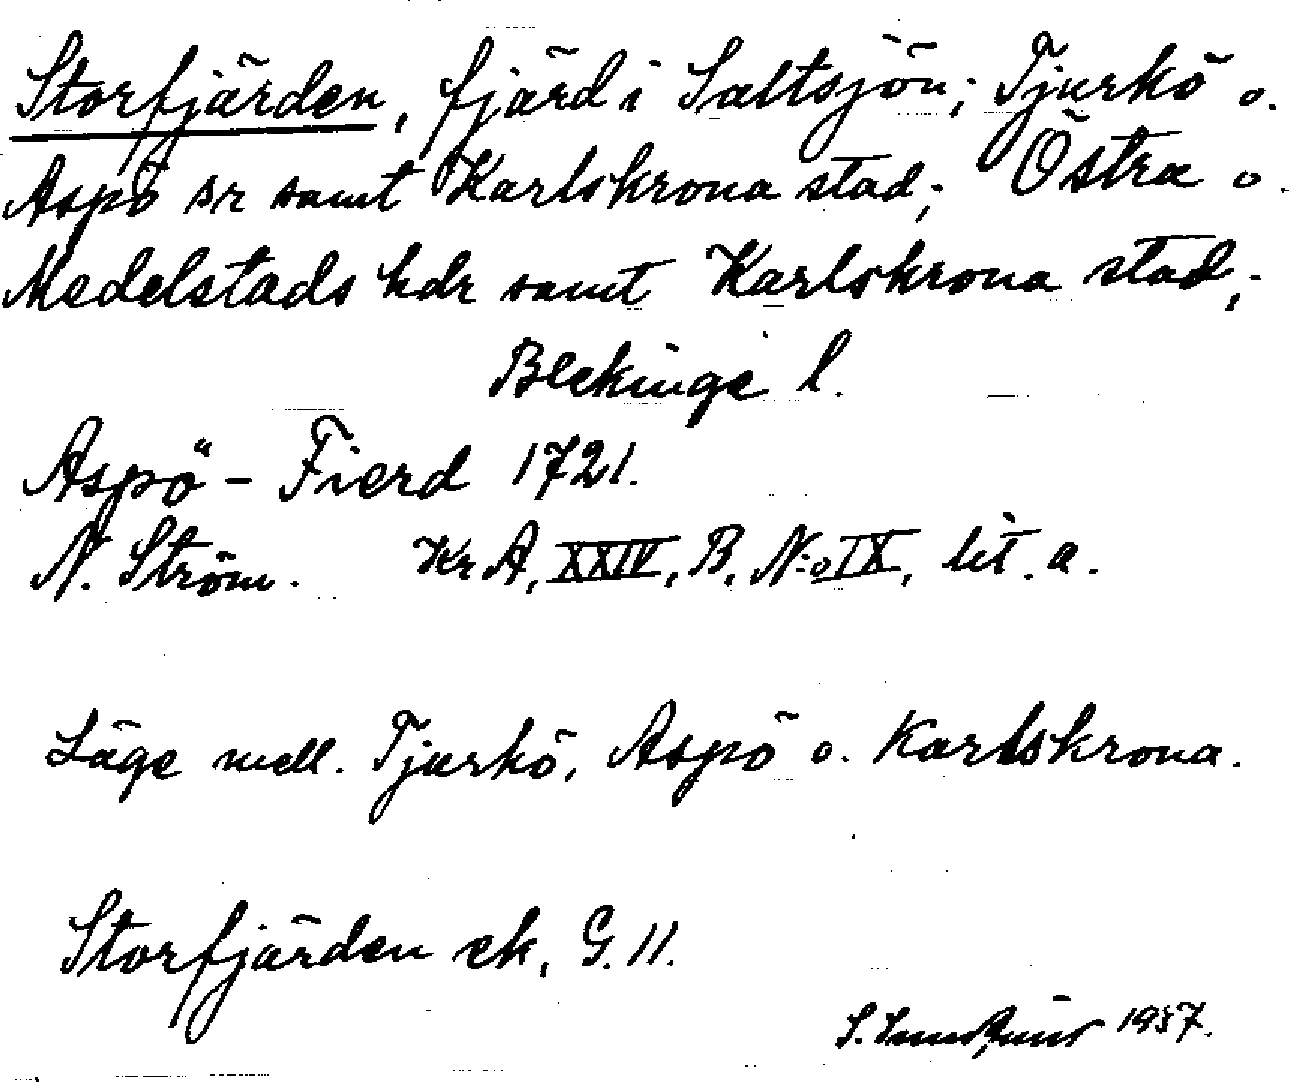 Storfjärden, fjärd i Saltsjön; Tjurkö o.
Aspö sr samt Karlskrona stad; Östra o.
Medelstads hdr samt Karlskrona stad;
Blekinge l.
Aspö - Fierd 1721.
N. Ström. KrA, XXIV, B, N:o IX, lit. a.
Läge mell. Tjurkö, Aspö o. Karlskrona.
Storfjärden ek. G. 11.
S. 1957.